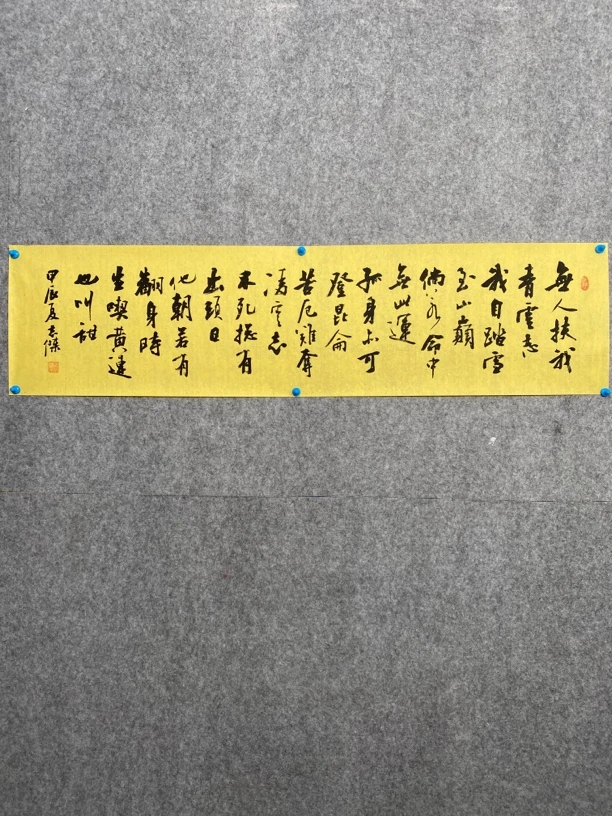 無人扶我
青雲志
我自踏雪
至山巔
倘若命中
無此運
孤身亦可
登昆侖
苦厄難奪
淩雲志
不死總有
出頭日
他朝若有
翻身時
生喫黄連
也叫甜
甲辰夏志傑